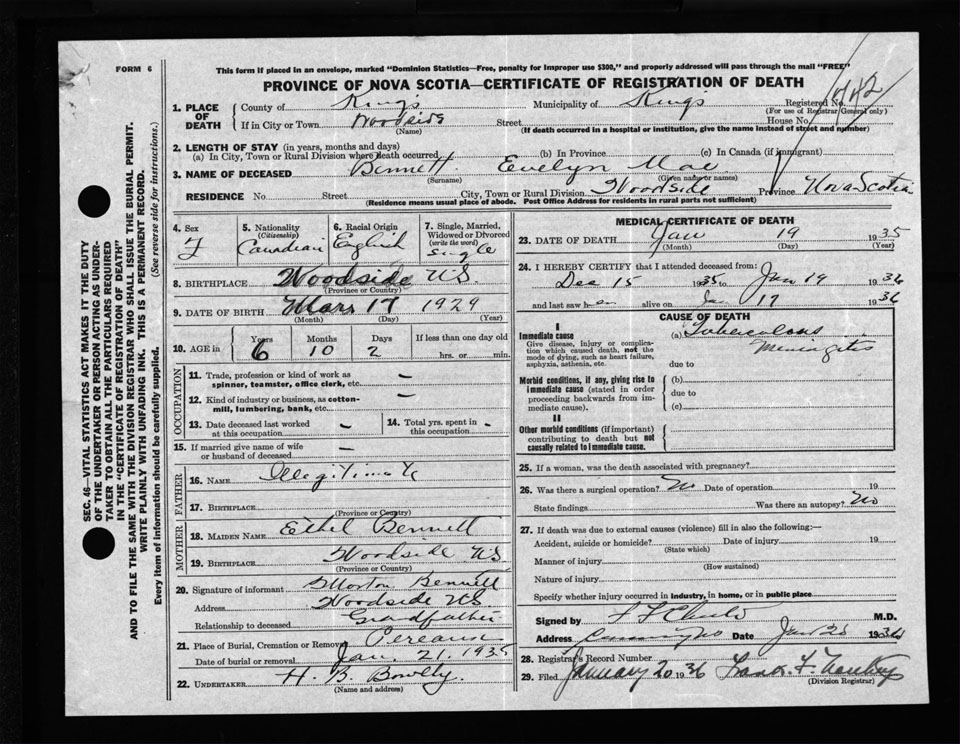 FORM 6
This form if placed in an envelope, marked "Dominion Statistics—Free, penalty for improper use $300," and properly addressed will pass through the mail "FREE"
PROVINCE OF NOVA SCOTIA—CERTIFICATE OF REGISTRATION OF DEATH
1. PLACE OF DEATH County of King's Municipality of King's Registered No. 442
(For use of Registrar General only)
If in City or Town Woodside Street House No.
(Name) (If death occurred in a hospital or institution, give the name instead of street and number)
2. LENGTH OF STAY (in years, months and days)
(a) In City, Town or Rural Division where death occurred (b) In Province (c) In Canada (if immigrant)
3. NAME OF DECEASED Bennett Evelyn Mae
(Surname) (Given name or names)
RESIDENCE No. Street City, Town or Rural Division Woodside Province Nova Scotia
(Residence means usual place of abode. Post Office Address for residents in rural parts not sufficient)
4. Sex F
5. Nationality (Citizenship) Canadian
6. Racial Origin English
7. Single, Married, Widowed or Divorced (write the word) Single
8. BIRTHPLACE Woodside NS
(Province or Country)
9. DATE OF BIRTH Mar 17 1929
(Month) (Day) (Year)
10. AGE in Years 6 Months 10 Days 2 If less than one day old
hrs. or min.
OCCUPATION
11. Trade, profession or kind of work as spinner, teamster, office clerk, etc. –
12. Kind of industry or business, as cotton-mill, lumbering, bank, etc. –
13. Date deceased last worked at this occupation –
14. Total yrs. spent in this occupation -
15. If married give name of wife or husband of deceased –
FATHER
16. NAME Illegitimate
17. BIRTHPLACE
(Province or Country)
MOTHER
18. MAIDEN NAME Ethel Bennett
19. BIRTHPLACE Woodside NS
(Province or Country)
20. Signature of informant Morton Bennett
Address Woodside NS
Relationship to deceased Grandfather
21. Place of Burial, Cremation or Removal Pereaux
Date of burial or removal Jan. 21, 1935
22. UNDERTAKER H. B. Bowlby.
(Name and address)
MEDICAL CERTIFICATE OF DEATH
23. DATE OF DEATH Jan 19 1935
(Month) (Day) (Year)
24. I HEREBY CERTIFY that I attended deceased from:
Dec 15 1935 to Jan 19 1936
and last saw her alive on Jan 17 1936
CAUSE OF DEATH
I
Immediate cause
Give disease, injury or complication which caused death, not the mode of dying, such as heart failure, asphyxia, asthenia, etc.
(a) Tuberculous Meningitis
due to
Morbid conditions, if any, giving rise to immediate cause (stated in order proceeding backwards from immediate cause).
(b)
due to
(c)
II
Other morbid conditions (if important) contributing to death but not causally related to immediate cause.
25. If a woman, was the death associated with pregnancy?
26. Was there a surgical operation? No Date of operation 19
State findings Was there an autopsy? No
27. If death was due to external causes (violence) fill in also the following:—
Accident, suicide or homicide? Date of injury 19
(State which)
Manner of injury
(How sustained)
Nature of injury
Specify whether injury occurred in industry, in home, or in public place
Signed by M.D.
Address Canning NS Date Jan 20 1936
28. Registrar's Record Number
29. Filed January 20 1936
(Division Registrar)
SEC. 46—VITAL STATISTICS ACT MAKES IT THE DUTY OF THE UNDERTAKER OR PERSON ACTING AS UNDERTAKER TO OBTAIN ALL THE PARTICULARS REQUIRED IN THE "CERTIFICATE OF REGISTRATION OF DEATH" AND TO FILE THE SAME WITH THE DIVISION REGISTRAR WHO SHALL ISSUE THE BURIAL PERMIT.
WRITE PLAINLY WITH UNFADING INK. THIS IS A PERMANENT RECORD.
Every item of information should be carefully supplied. (See reverse side for instructions.)